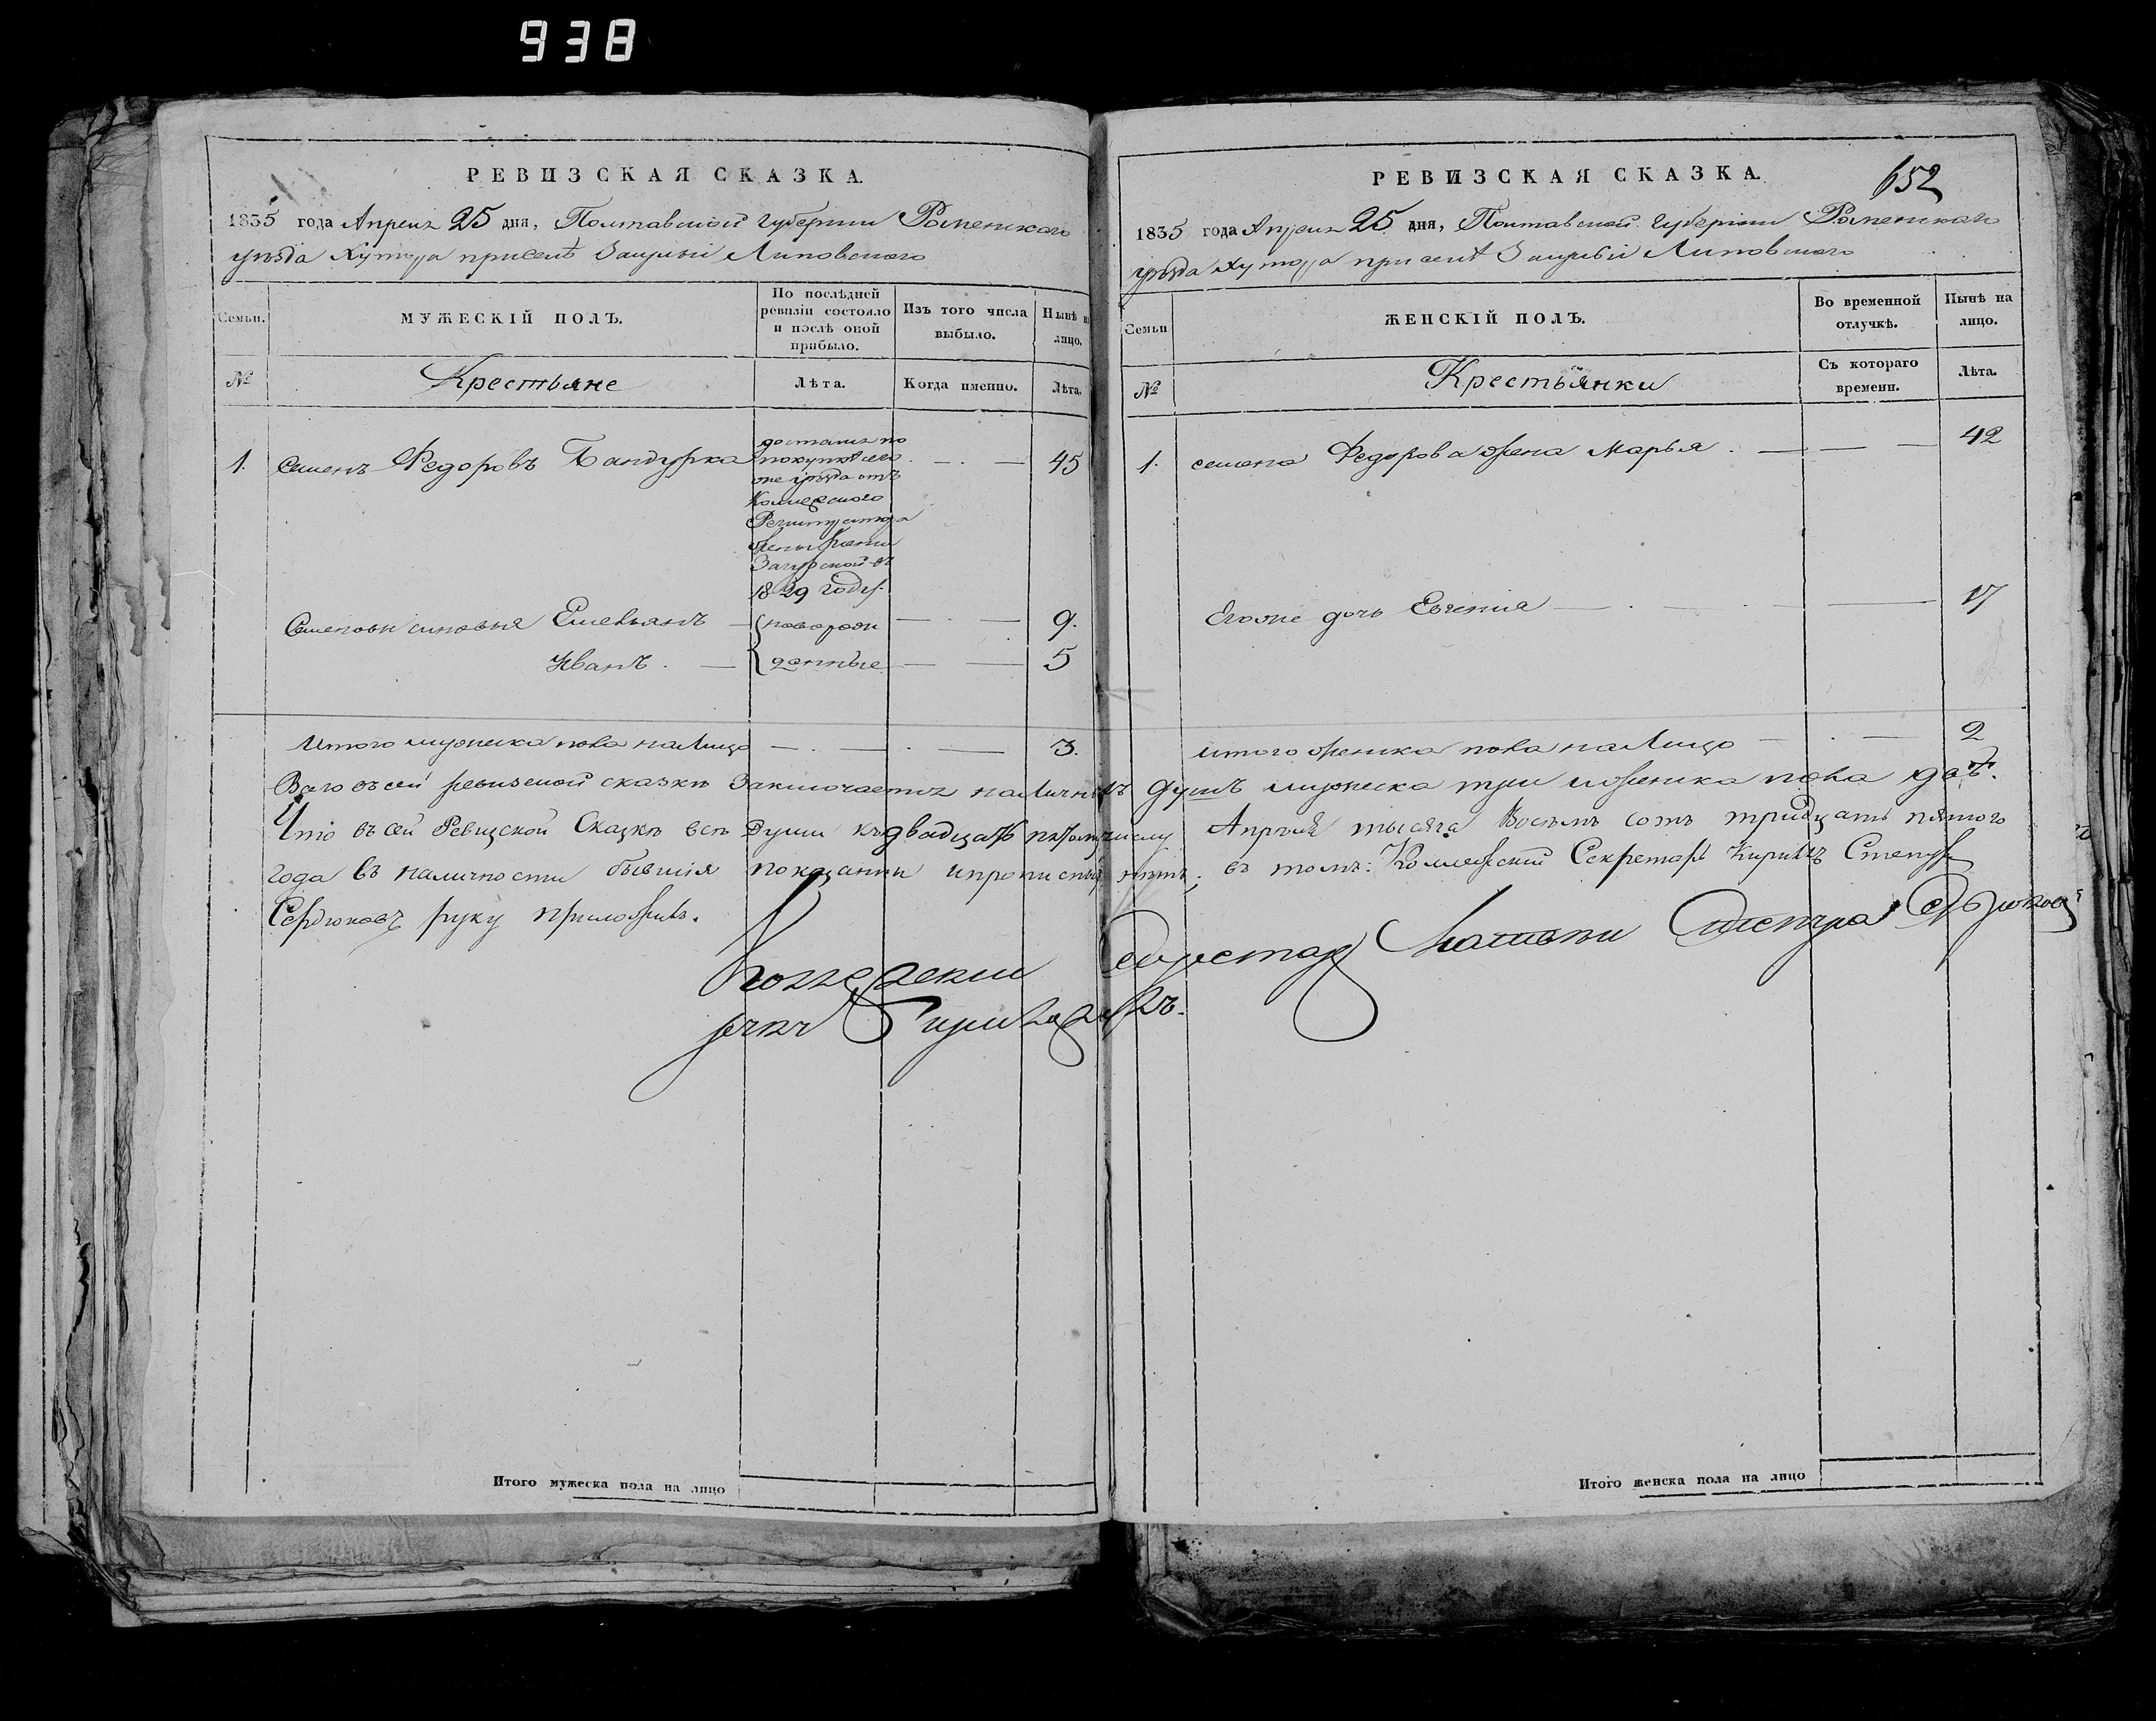 938
РЕВИЗСКАЯ СКАЗКА.
1835 года Апреля 25 дня, Полтавской Губернии Роменского
уезда Хутора приселѣ Липовского
Семьи.
МУЖЕСКІЙ ПОЛЪ.
По послѣдней
ревизіи состояло
и послѣ оной
прибыло.
Изъ того числа
выбыло.
Нынѣ на
лицо.
№
Крестьяне
Лѣта.
Когда именно.
Лѣта.
1. Семенъ Федоровъ Бандурка
достался по
покупкѣ сего
оне уезда отъ
Колежского
Регистратора
жены
Загурской въ
1829 году.
45
Семеновы сыновья Емельянъ
новорож
9.
Иванъ.
денные
5
Итого мужеска пола на лицо 3.
РЕВИЗСКАЯ СКАЗКА.
652
1835 года Апреля 25 дня, Полтавской Губерніи Роменского
уезда Хутора приселѣ Липовского
Семьи
ЖЕНСКІЙ ПОЛЪ.
Во временной
отлучкѣ.
Нынѣ на
лицо.
№
Крестьянки
Съ котораго
времени.
Лѣта.
1. Семена Федорова жена Марья.
42
Егоже дочь Евгенiя
17
итого женска пола на Лицо 2
Всего въ сей ревизской сказкѣ Заключается наличныхъ душъ мужеска три и женска пола двѣ.
Что въ сей Ревизской Сказкѣ всѣ души къ двадцать пятому числу Апрѣля тысяча Восѣмъ сотъ тридцать пятого
года въ наличности бывшія показанны и прописныхъ нѣтъ; въ томъ: Коллежский Секретарь Кирилъ
Сердюковъ руку приложилъ.
Коллежский Секретарь
руку приложилъ.
Итого мужеска пола на лицо
Итого женска пола на лицо